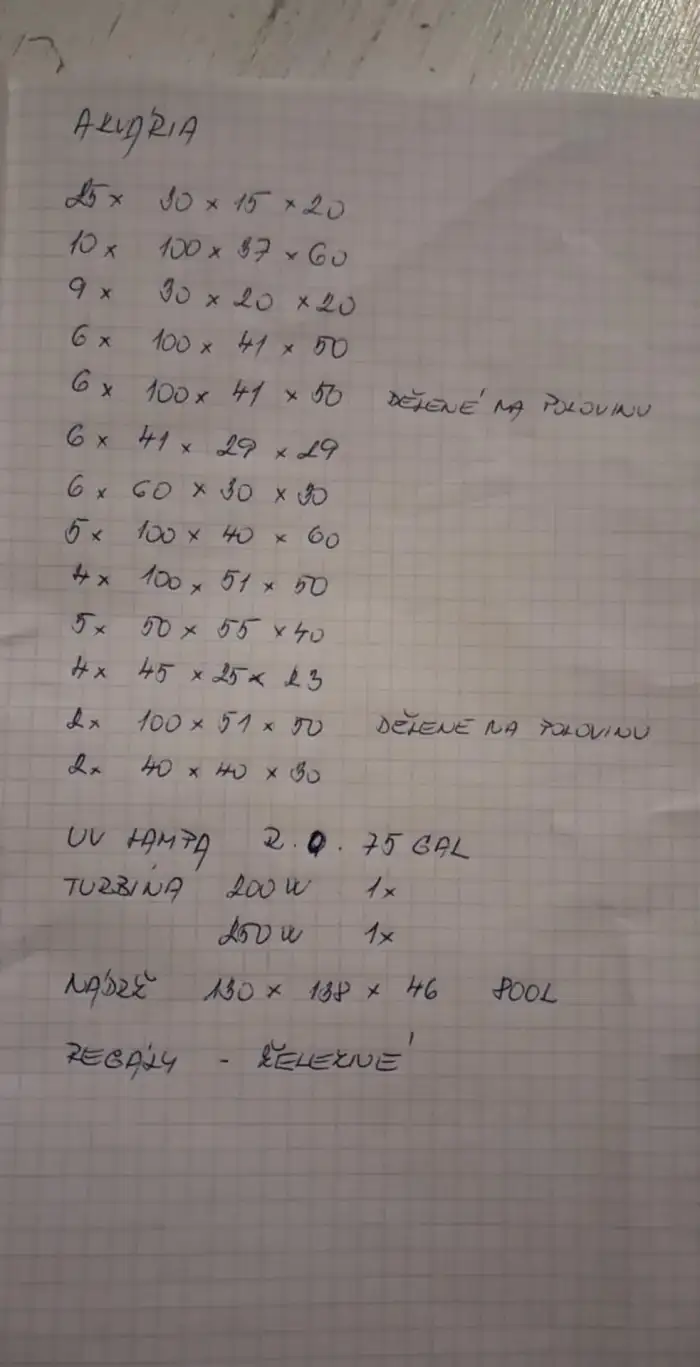 AKVÁRIA
25x 30 x 15 x 20
10x 100 x 37 x 60
9x 30 x 20 x 20
6x 100 x 41 x 50
6x 100 x 41 x 50 DĚLENÉ NA POLOVINU
6x 41 x 29 x 29
6x 60 x 30 x 30
5x 100 x 40 x 60
4x 100 x 51 x 50
5x 50 x 55 x 40
4x 45 x 25 x 23
2x 100 x 51 x 50 DĚLENÉ NA POLOVINU
2x 40 x 40 x 30
UV LAMPA R.O. 75 GAL
TURBÍNA 200W 1x
250W 1x
NÁDRŽ 130 x 138 x 46 800L
REGÁLY - ŽELEZNÉ